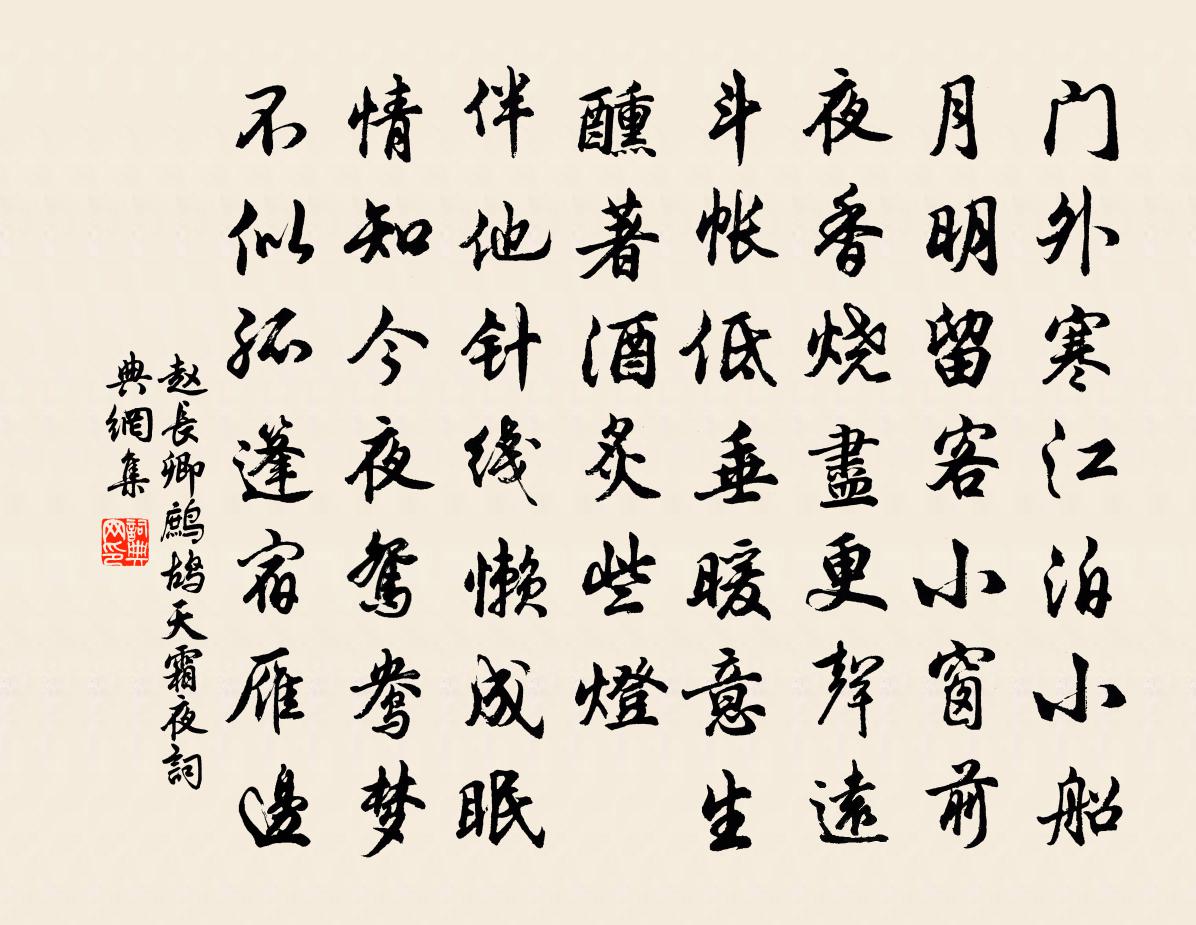 门外寒江泊小船
月明留客小窗前
夜香烧盡更聲遠
斗帐低垂暖意生
醺著酒炙些燈
伴他针线懒成眠
情知今夜鸳鸯梦
不似孤蓬宿雁邊
赵長卿鹧鸪天霜夜詞
典網集
詞典网印